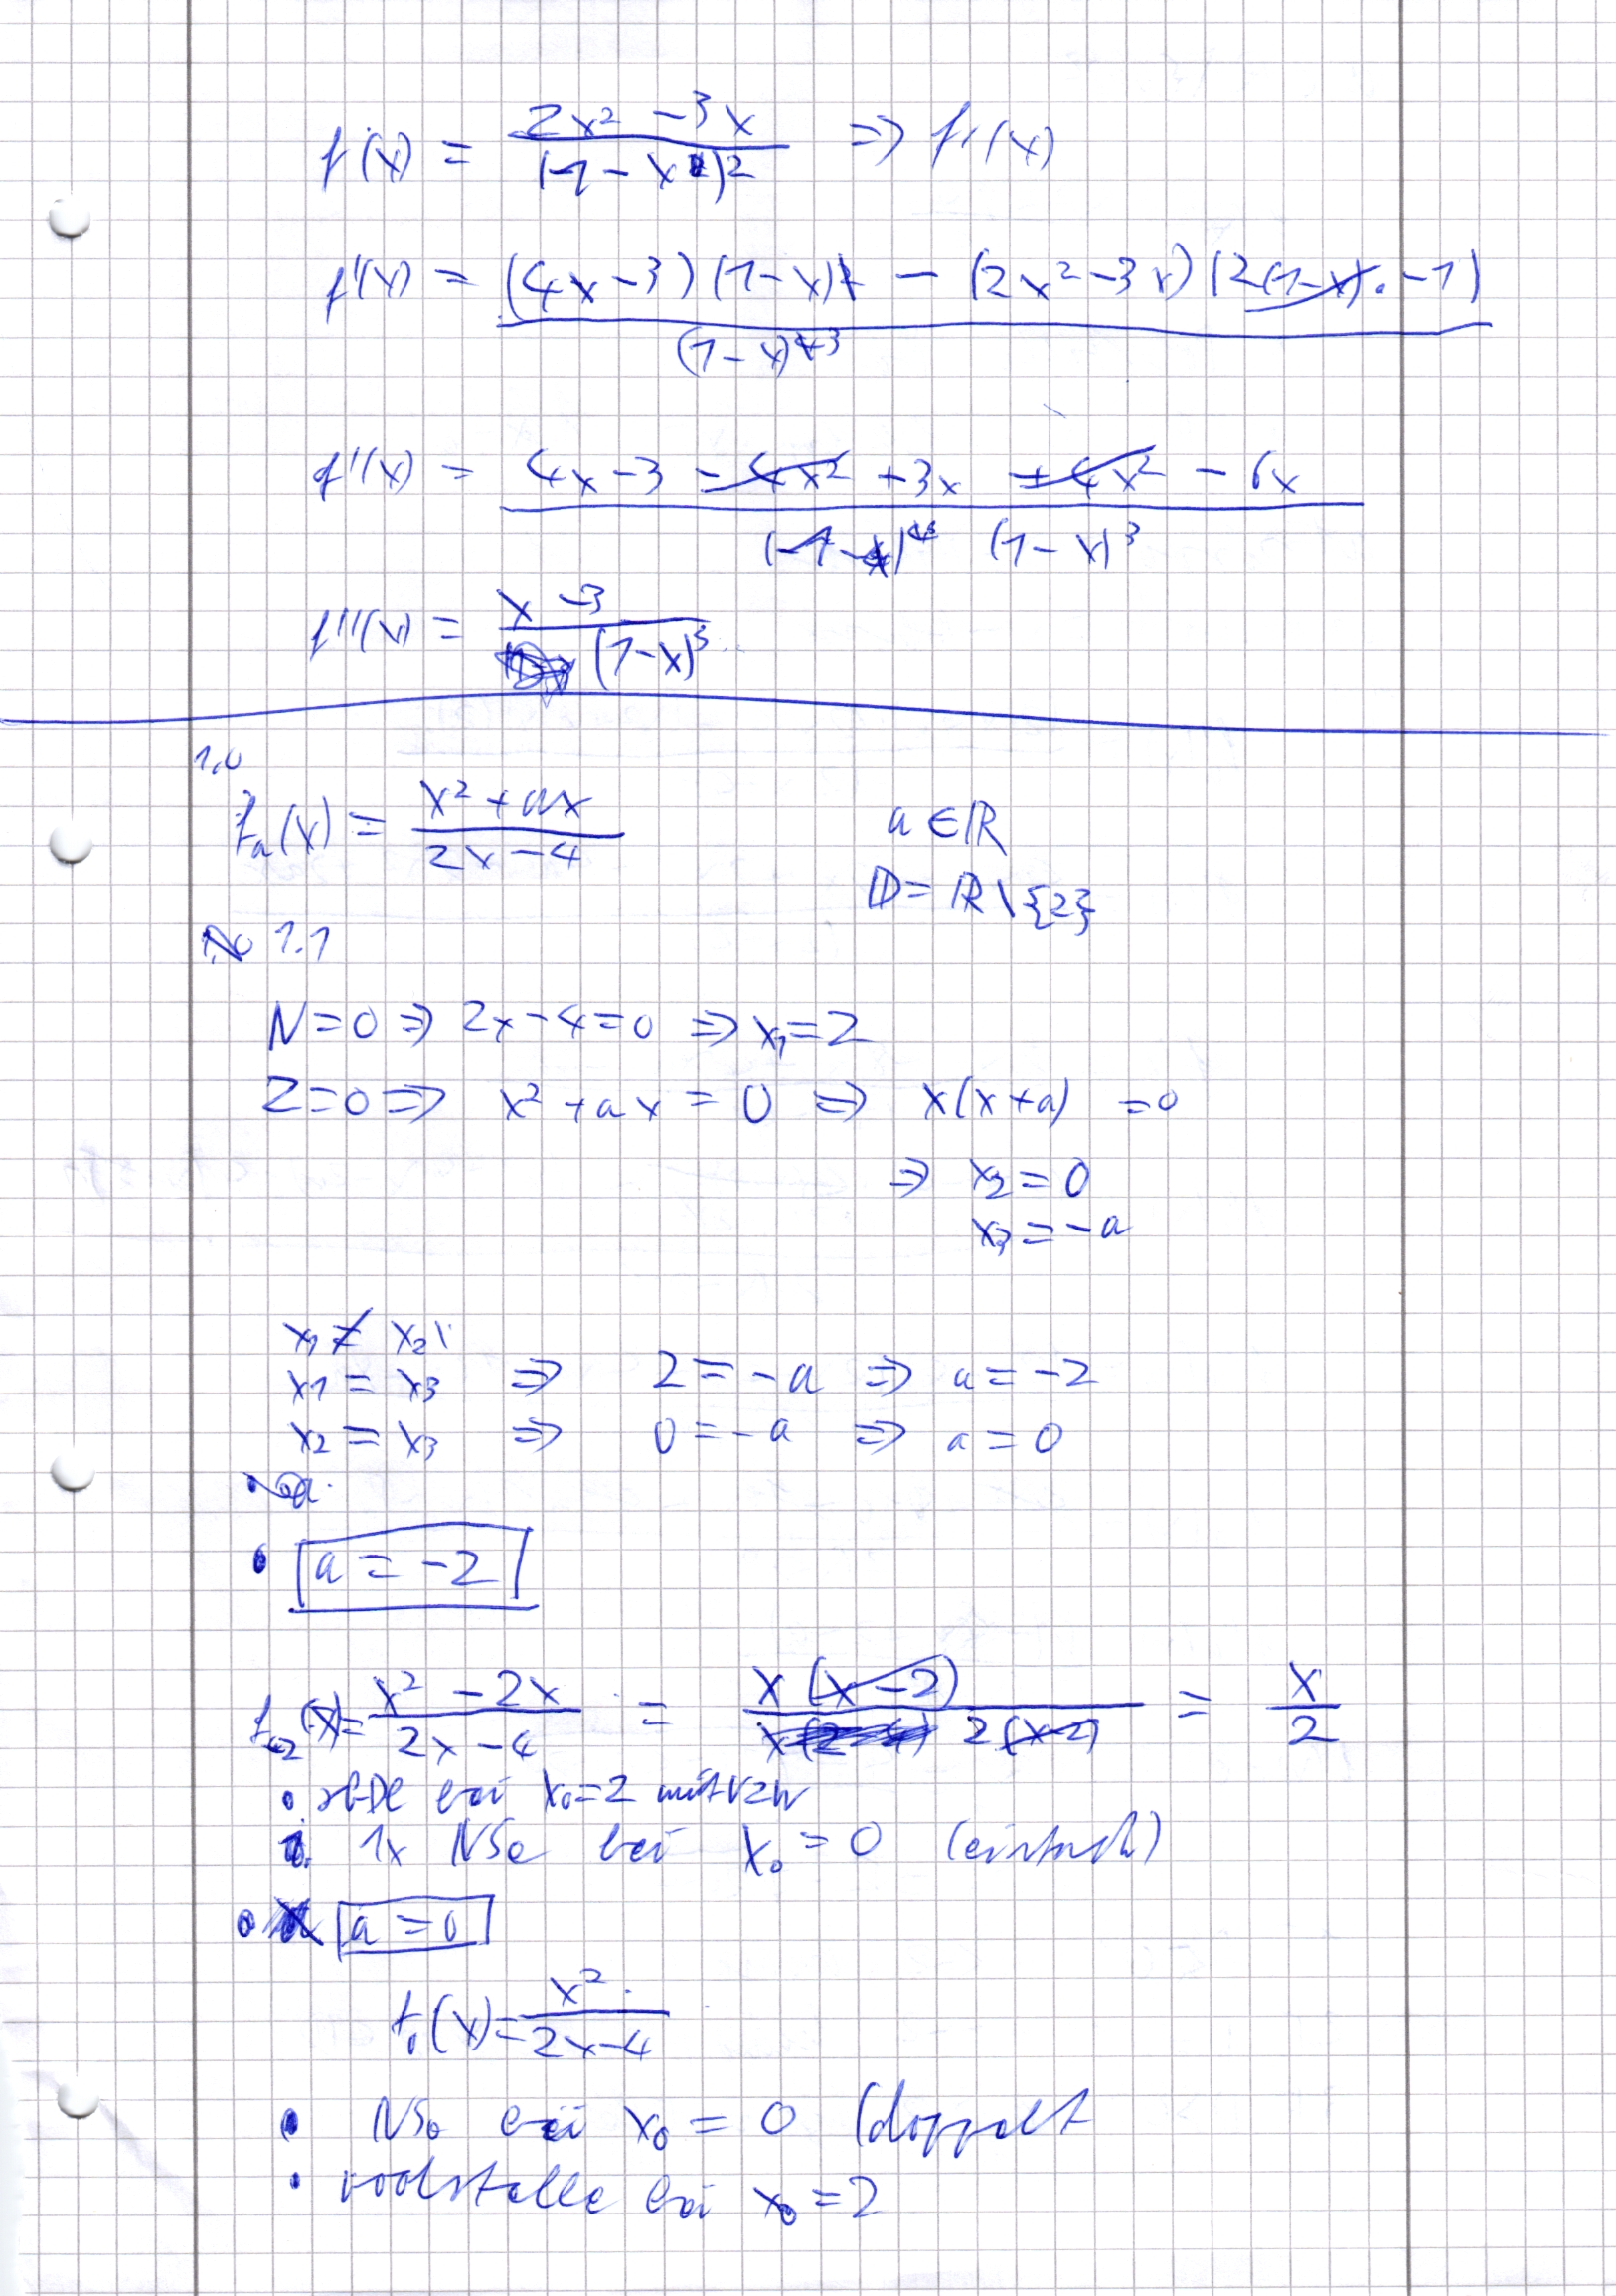 f(x) = (2x² - 3x)/(1 - x)² ⇒ f'(x)
f'(x) = ((4x - 3)(1 - x) - (2x² - 3x)(2(1-x) · -1))/(1 - x)³
f''(x) = (4x - 3 - 4x² + 3x + 4x² - 6x)/(1 - x)³
f'''(x) = (x - 3)/(1 - x)³
1.0
fₐ(x) = (x² + ax)/(2x - 4)    a ∈ ℝ
𝔻 = ℝ \ {2}
1.1
N = 0 ⇒ 2x - 4 = 0 ⇒ x₁ = 2
Z = 0 ⇒ x² + ax = 0 ⇒ x(x + a) = 0
⇒ x₂ = 0
x₃ = -a
x₁ ≠ x₂
x1 = x₃ ⇒ 2 = -a ⇒ a = -2
x₂ = x₃ ⇒ 0 = -a ⇒ a = 0
• a = -2
f₋₂(x) = (x² - 2x)/(2x - 4) = (x(x - 2))/(2(x-2)) = x/2
• bei x₀ = 2 mit VZW
• 1x NSe bei x₀ = 0 (einfach)
• a = 0
f₀(x) = x²/(2x - 4)
• NSe bei x₀ = 0 (doppelt
• bei x₀ = 2